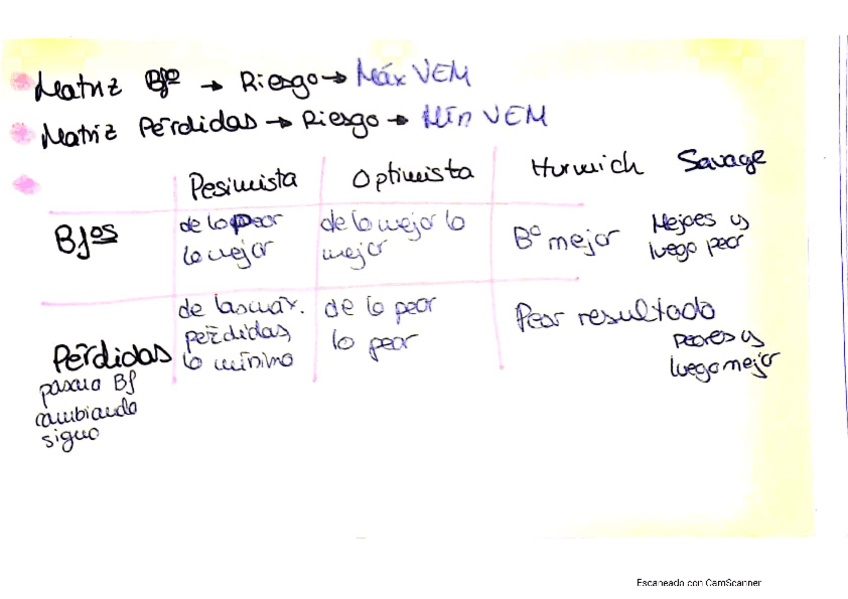 Matriz Bfº → Riesgo → Máx VEM
Matriz Pérdidas → Riesgo → Mín VEM
Pesimista Optimista Hurwich Savage
Bfos de lo peor lo mejor de lo mejor lo mejor Bº mejor Mejores y luego peor
Pérdidas pasaría Bf cambiando signo de las máx. pérdidas, lo mínimo de lo peor lo peor Peor resultado peores y luego mejor
Escaneado con CamScanner